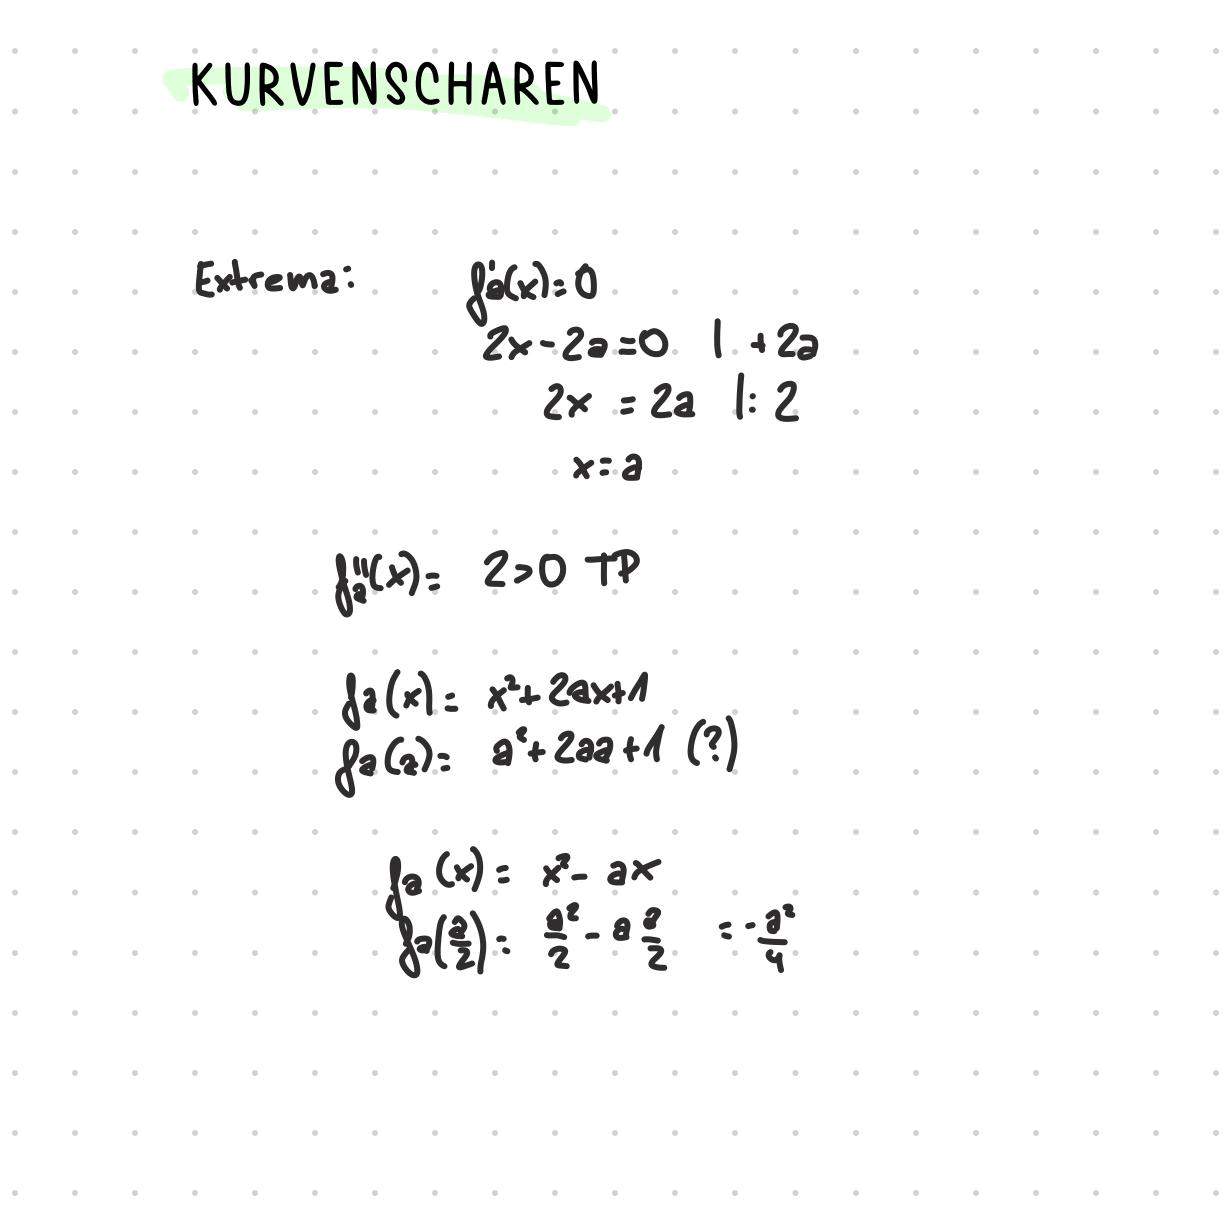 KURVENSCHAREN
Extrema: fa'(x)=0
2x-2a=0 | +2a
2x = 2a |: 2
x=a
fa''(x)= 2>0 TP
fa(x)= x²+2ax+1
fa(a)= a²+2aa+1 (?)
fa (x)= x²- ax
fa(a/2)= a²/2 - a a/2 = -a²/4